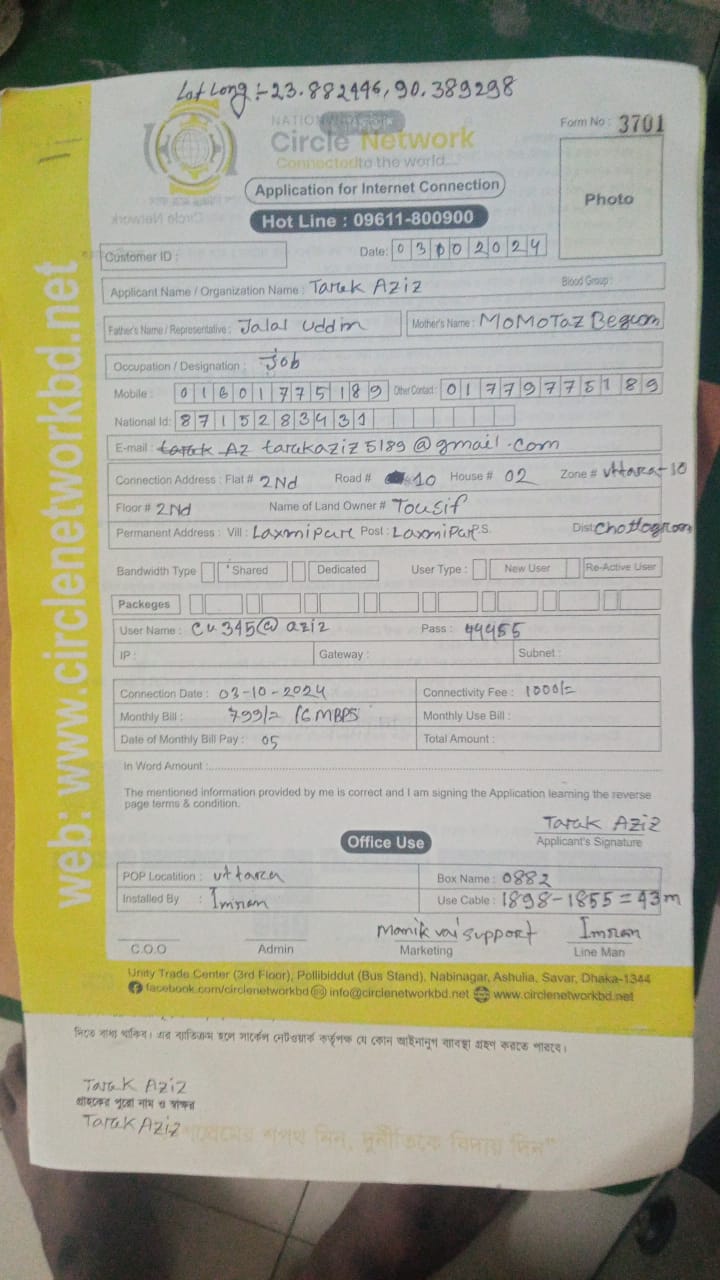 Lat Long :- 23.882496, 90.389298
NATIONWIDE ISP
Circle Network
Connected to the world....
Form No : 3701
Photo
Application for Internet Connection
Hot Line : 09611-800900
Customer ID :
Date: 03102024
Applicant Name / Organization Name : Tarek Aziz
Blood Group :
Father's Name / Representative : Jalal Uddin Mother's Name : MoMoTaz Begum
Occupation / Designation : Job
Mobile : 01601775189 Other Contact : 01779775189
National Id: 8715283431
E-mail : tarekaziz5189@gmail.com
Connection Address : Flat # 2Nd Road # 10 House # 02 Zone # Uttara-10
Floor # 2Nd Name of Land Owner # Tousif
Permanent Address : Vill : Laxmipure Post : Laxmipur P.S. Dist: Chottogram
Bandwidth Type Shared Dedicated User Type : New User Re-Active User
Packeges
User Name : cu345@aziz Pass : 44455
IP : Gateway : Subnet :
Connection Date : 03-10-2024 Connectivity Fee : 1000/=
Monthly Bill : 799/= 16 MBPS Monthly Use Bill :
Date of Monthly Bill Pay : 05 Total Amount :
In Word Amount :
The mentioned information provided by me is correct and I am signing the Application learning the reverse
page terms & condition.
Tarek Aziz
Applicant's Signature
Office Use
POP Locatition : Uttara Box Name : 0882
Installed By : Imran Use Cable : 1898-1855=43m
Manik vai support Imran
C.O.O Admin Marketing Line Man
Unity Trade Center (3rd Floor), Pollibiddut (Bus Stand), Nabinagar, Ashulia, Savar, Dhaka-1344
facebook.com/circlenetworkbd info@circlenetworkbd.net www.circlenetworkbd.net
web: www.circlenetworkbd.net
দিতে বাধ্য থাকিব। এর ব্যতিক্রম হলে সার্কেল নেটওয়ার্ক কর্তৃপক্ষ যে কোন আইনানুগ ব্যবস্থা গ্রহণ করতে পারবে।
Tarek Aziz
গ্রাহকের পুরো নাম ও স্বাক্ষর
Tarek Aziz
শপথ নিন, দুর্নীতিকে বিদায় দিন"